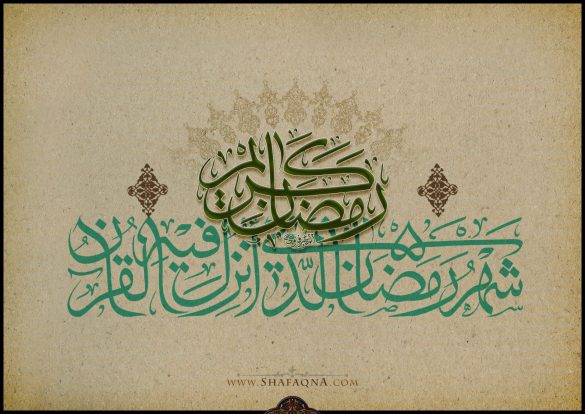 رمضان كريم
شهر رمضان الذي أنزل فيه القرآن
www.ShafaqnA.com